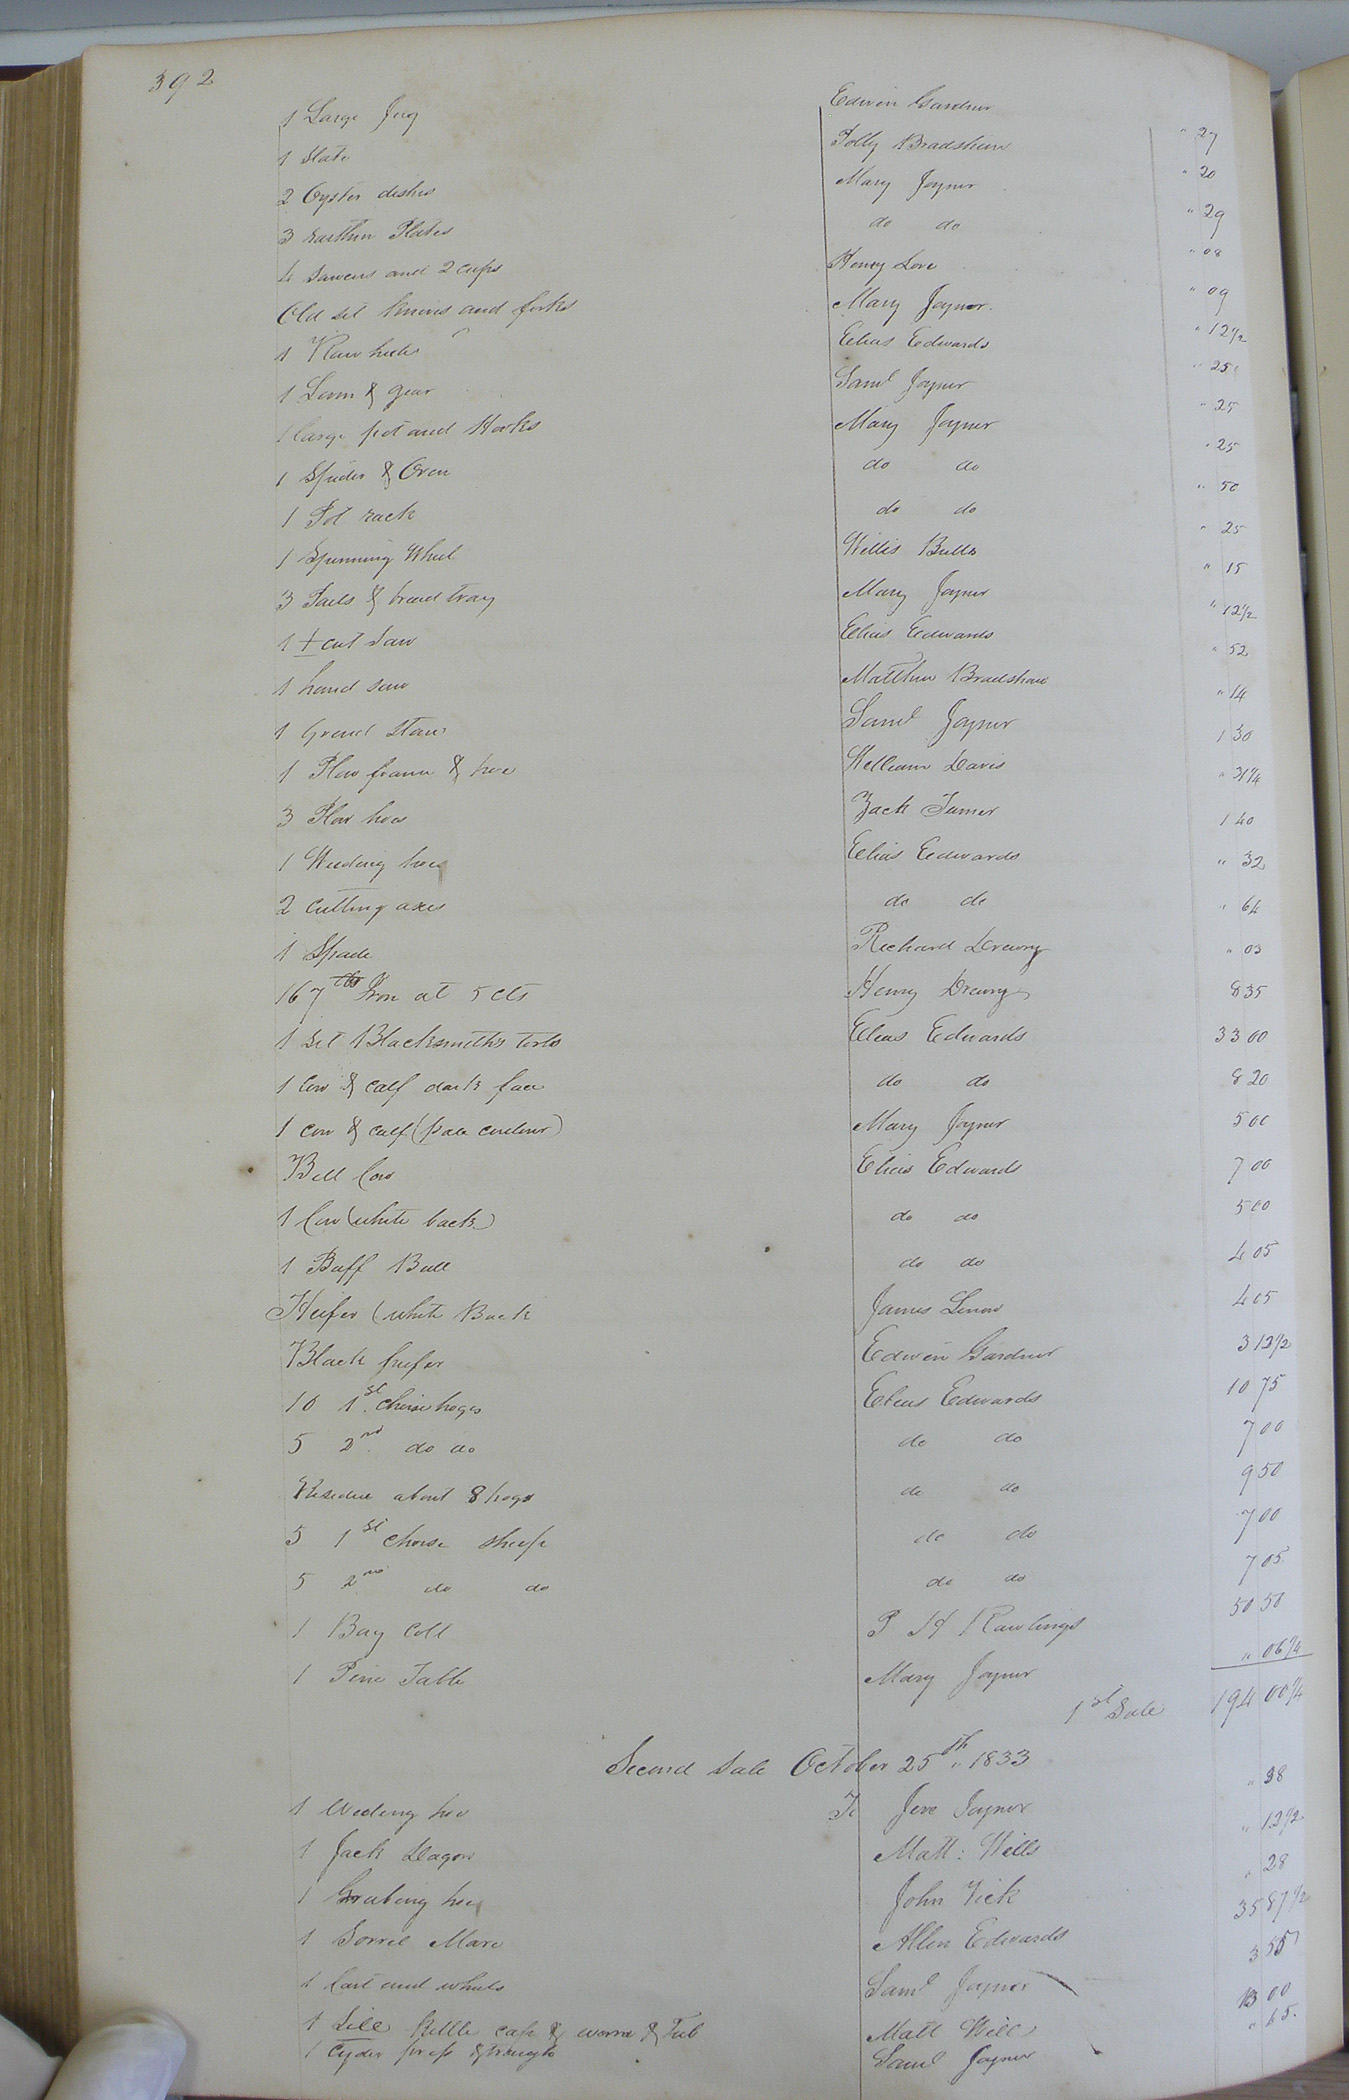 392
1 Large Jug Edwin Gardner " 27
1 Slate Polly Bradshaw " 20
2 Oyster dishes Mary Joyner " 29
3 earthen Plates do do " 08
4 Sawcers and 2 cups Henry Love " 09
Old set knives and forks Mary Joyner " 12 1/2
1 Raw hide Elias Edwards " 25
1 Loom & gear Saml Joyner " 25
1 large pot and Hooks Mary Joyner " 25
1 Spider & Oven do do " 50
1 Pot rack do do " 25
1 Spinning Wheel Willis Bulls " 15
3 Pails & bread tray Mary Joyner " 12 1/2
1 + cut Saw Elias Edwards " 52
1 hand saw Matthew Bradshaw " 14
1 Grind Stone Saml Joyner 1 30
1 Plow frame & hoe William Davis " 31 1/4
3 Plow hoes Zack Turner 1 40
1 Weeding hoe Elias Edwards " 32
2 Cutting axes do do " 64
1 Spade Richard Drewry " 03
167 lbs Iron at 5 cts Henry Drewry 8 35
1 Set Blacksmith's tools Elias Edwards 33 00
1 Cow & calf dark face do do 8 20
1 cow & calf (pale coulour) Mary Joyner 5 00
Bell Cow Elias Edwards 7 00
1 Cow (white back) do do 5 00
1 Buff Bull do do 4 05
Heifer (white Back James Linow 4 05
Black heifer Edwin Gardner 3 12 1/2
10 1st Choise hogs Elias Edwards 10 75
5 2nd do do do do 7 00
Residue about 8 hogs do do 9 50
5 1st Choise sheep do do 7 00
5 2nd do do do do 7 05
1 Bay Colt P H Rawlings 50 50
1 Pine Table Mary Joyner " 06 1/4
1st Sale 194 00 1/4
Second Sale October 25th " 1833
1 Weeding hoe To Jere Joyner " 38
1 Jack Wagon Matt: Wills " 12 1/2
1 Grubing hoe John Vick " 28
1 Sorrel Mare Allen Edwards 35 87 1/2
1 Cart and wheels Saml Joyner 3 55
1 Still Kettle cap & worm & Tub Matt Will 13 00
1 Cyder press & trough Saml Joyner " 65